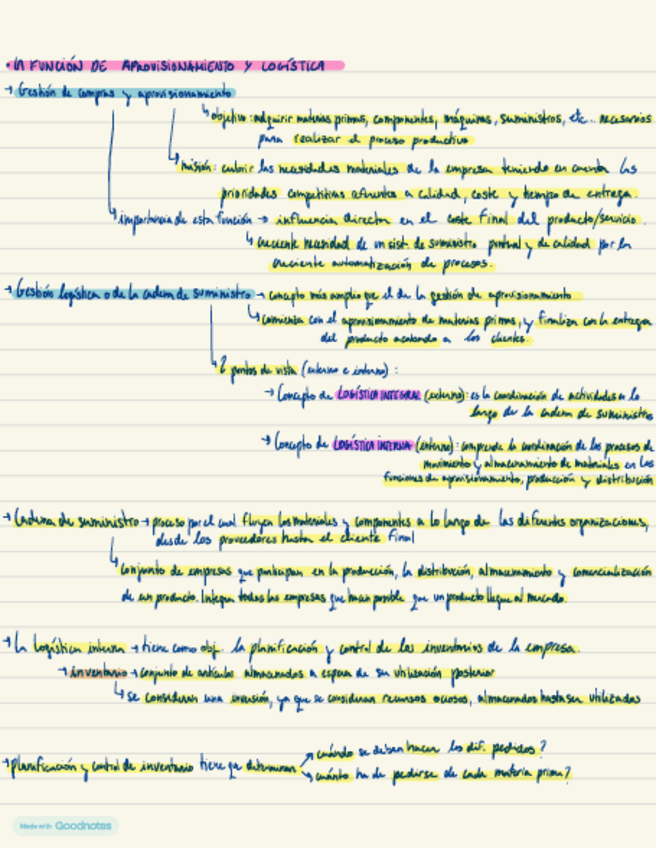 • LA FUNCIÓN DE APROVISIONAMIENTO Y LOGÍSTICA
→ Gestión de compras y aprovisionamiento
↳ objetivo: adquirir materias primas, componentes, máquinas, suministros, etc... necesarios
para realizar el proceso productivo
↳ misión: cubrir las necesidades materiales de la empresa teniendo en cuenta las
prioridades competitivas referentes a calidad, coste y tiempo de entrega.
↳ importancia de esta función → influencia directa en el coste final del producto/servicio.
↳ creciente necesidad de un sist. de suministro puntual y de calidad por la
creciente automatización de procesos.
→ Gestión logística o de la cadena de suministro → concepto más amplio que el de la gestión de aprovisionamiento
↳ comienza con el aprovisionamiento de materias primas, y finaliza con la entrega
del producto acabado a los clientes.
↳ 2 puntos de vista (externo e interno):
→ Concepto de LOGÍSTICA INTEGRAL (externo): es la coordinación de actividades a lo
largo de la cadena de suministro
→ Concepto de LOGÍSTICA INTERNA (interno): comprende la coordinación de los procesos de
movimiento y almacenamiento de materiales en las
funciones de aprovisionamiento, producción y distribución
→ Cadena de suministro → proceso por el cual fluyen los materiales y componentes a lo largo de las diferentes organizaciones,
desde los proveedores hasta el cliente final
↳ conjunto de empresas que participan en la producción, la distribución, almacenamiento y comercialización
de un producto. Integra todas las empresas que hacen posible que un producto llegue al mercado.
→ La logística interna → tiene como obj. la planificación y control de los inventarios de la empresa.
→ inventario → conjunto de artículos almacenados a espera de su utilización posterior
↳ se consideran una inversión, ya que se consideran recursos ociosos, almacenados hasta ser utilizados
→ planificación y control de inventario tiene que determinar
→ cuándo se deben hacer los dif. pedidos?
→ cuánto ha de pedirse de cada materia prima?
Made with Goodnotes